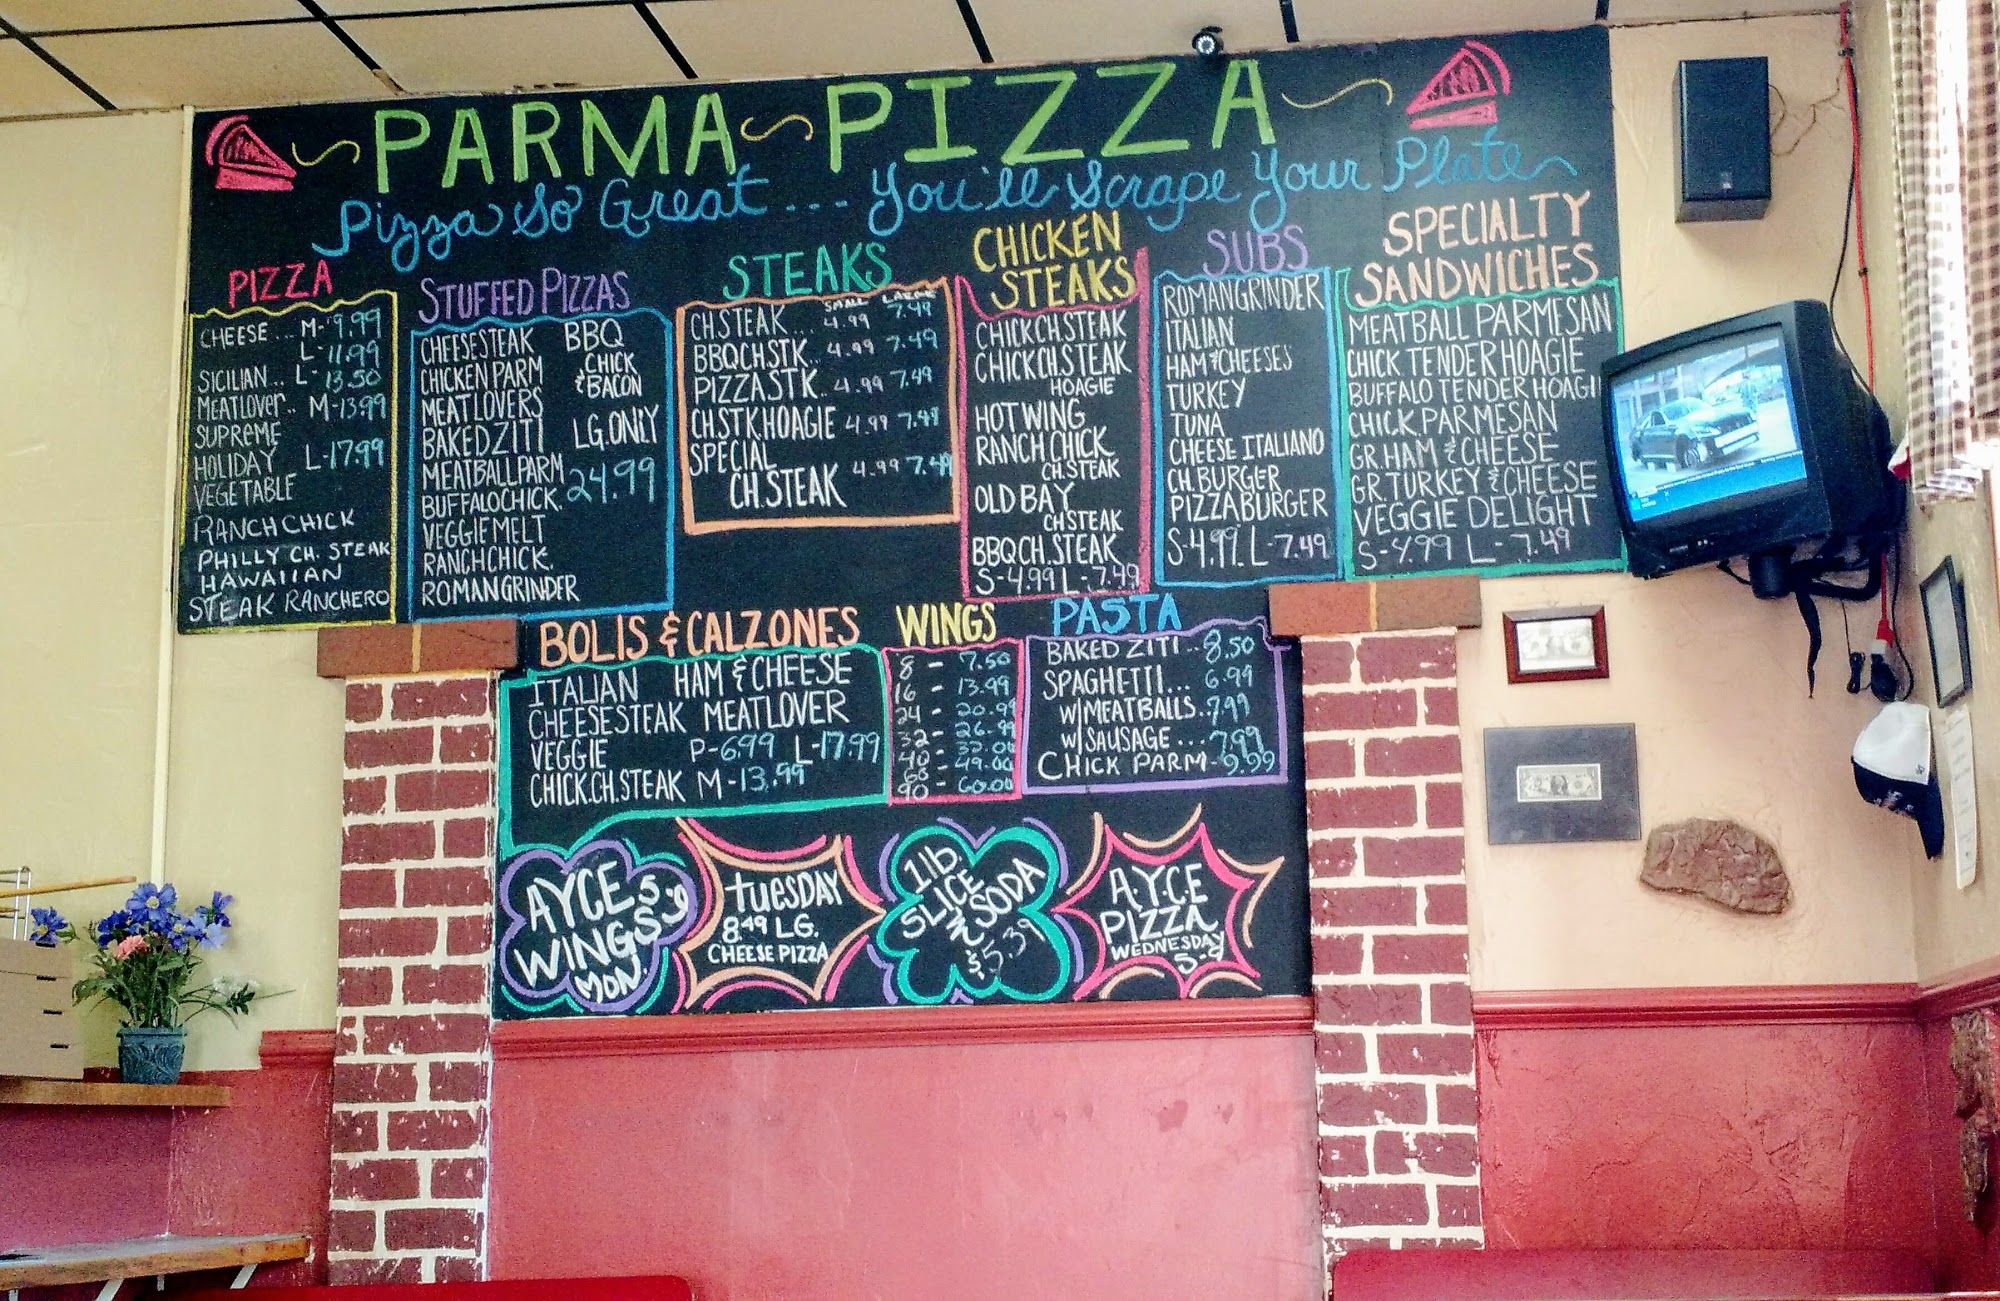 PARMA PIZZA
Pizza So Great... You'll Scrape Your Plate
PIZZA
CHEESE... M-9.99
L-11.99
SICILIAN.. L-13.50
MEATLOVER.. M-13.99
SUPREME
HOLIDAY L-17.99
VEGETABLE
RANCH CHICK
PHILLY CH. STEAK
HAWAIIAN
STEAK RANCHERO
STUFFED PIZZAS
CHEESESTEAK
CHICKEN PARM
MEATLOVERS
BAKED ZITI
MEATBALL PARM
BUFFALO CHICK.
VEGGIE MELT
RANCH CHICK.
ROMAN GRINDER
BBQ
CHICK
& BACON
LG. ONLY
24.99
STEAKS
SMALL LARGE
CH. STEAK... 4.99 7.49
BBQ CH. STK.. 4.99 7.49
PIZZA STK.. 4.99 7.49
CH. STK. HOAGIE 4.99 7.49
SPECIAL
CH. STEAK 4.99 7.49
CHICKEN
STEAKS
CHICK CH. STEAK
CHICK CH. STEAK
HOAGIE
HOT WING
RANCH CHICK
CH. STEAK
OLD BAY
CH STEAK
BBQ CH. STEAK
S-4.99 L-7.49
SUBS
ROMAN GRINDER
ITALIAN
HAM & CHEESES
TURKEY
TUNA
CHEESE ITALIANO
CH. BURGER
PIZZA BURGER
S-4.99 L-7.49
SPECIALTY
SANDWICHES
MEATBALL PARMESAN
CHICK TENDER HOAGIE
BUFFALO TENDER HOAGI
CHICK. PARMESAN
GR. HAM & CHEESE
GR. TURKEY & CHEESE
VEGGIE DELIGHT
S-4.99 L-7.49
BOLIS & CALZONES
ITALIAN HAM & CHEESE
CHEESESTEAK MEATLOVER
VEGGIE P-6.99 L-17.99
CHICK. CH. STEAK M-13.99
WINGS
8 - 7.50
16 - 13.99
24 - 20.99
32 - 26.99
40 - 32.00
60 - 49.00
90 - 60.00
PASTA
BAKED ZITI.. 8.50
SPAGHETTI... 6.99
W/MEATBALLS.. 7.99
W/SAUSAGE... 7.99
CHICK PARM - 9.99
AYCE 5-9
WINGS
MON.
TUESDAY
8.49 LG.
CHEESE PIZZA
1 lb.
SLICE
n SODA
$5.39
A.Y.C.E
PIZZA
WEDNESDAY
5-9